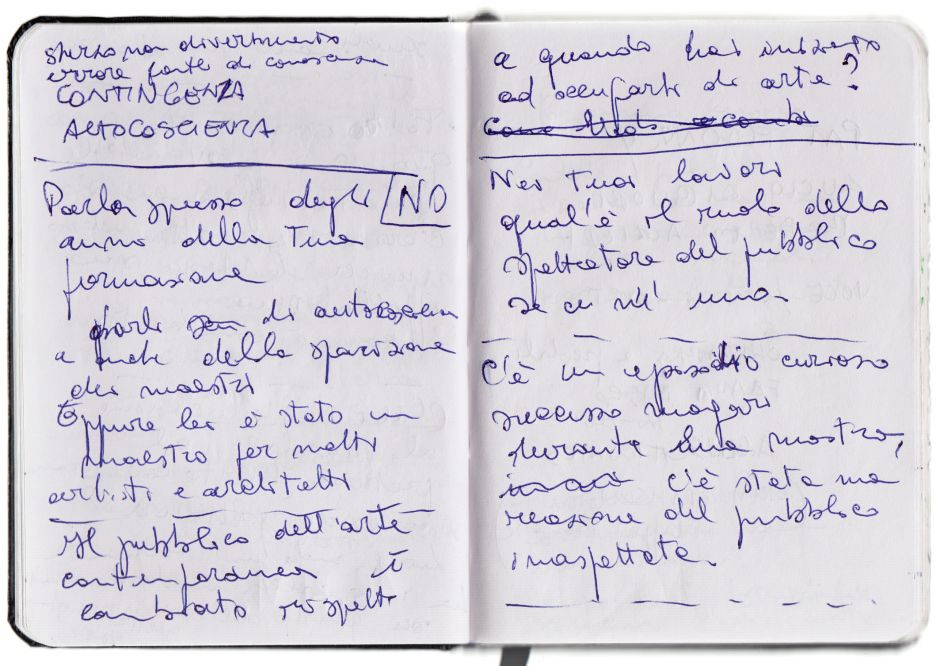 sforzo, non divertimento
errore fonte di conoscenza
CONTINGENZA
AUTOCOSCIENZA
Parla spesso degli NO
anni della Tua
formazione
parli di autocoscienza
e anche della sparizione
dei maestri
Eppure lei è stato un
maestro per molti
artisti e architetti
Il pubblico dell'arte
contemporanea è
cambiato rispetto
a quando hai iniziato
ad occuparti di arte?
Nei Tuoi lavori
qual'è il ruolo dello
spettatore del pubblico
se ce n'è uno.
C'è un episodio curioso
successo magari
durante una mostra,
c'è stata una
reazione del pubblico
inaspettata.